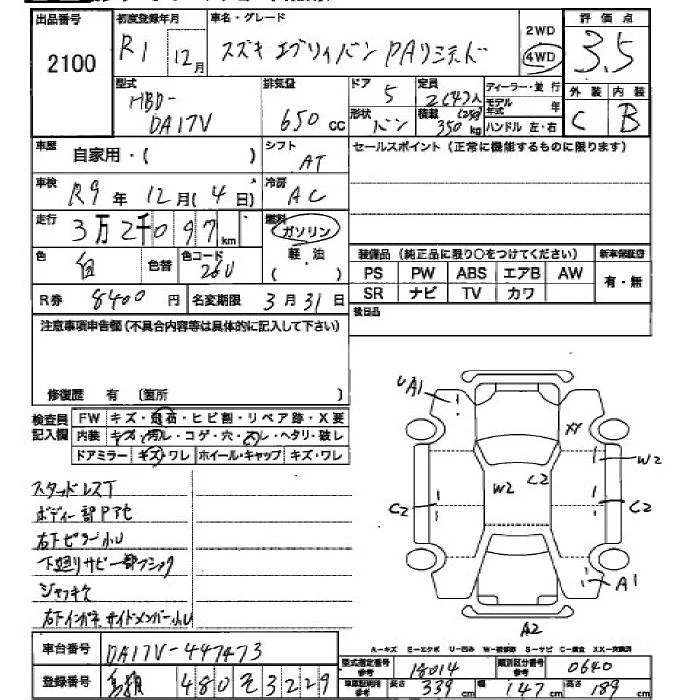 出品番号 初度登録年月 車名・グレード 評価点
2100 R1 12月 スズキ エブリィバン PAリミテッド 2WD 4WD 3.5
型式 排気量 ドア 定員 ディーラー・並行 外装 内装
HBD-DA17V 650cc 5 2(4)人 モデル年式 年 C B
形状 バン 積載 (250) 350kg ハンドル 左・右
車歴 自家用・( ) シフト AT セールスポイント(正常に機能するものに限ります)
車検 R9年12月(4日) 冷房 AC
走行 3万2千097km 燃料 ガソリン
色 白 色替 色コード 26U 軽油 ( ) 装備品(純正品に限り○をつけてください) 新車保証書
PS PW ABS エアB AW 有・無
SR ナビ TV カワ
R券 8400円 名変期限 3月31日 後日品
注意事項申告欄(不具合内容等は具体的に記入して下さい)
修復歴 有 〔箇所
検査員記入欄 FW キズ・飛石・ヒビ割・リペア跡・X要
内装 キズ・汚レ・コゲ・穴・スレ・ヘタリ・破レ
ドアミラー キズ・ワレ ホイール・キャップ キズ・ワレ
UA1
XX
W2
W2 C2
C2 C2
A1
A2
スタッドレスT
ボディー部Pアセ
右下ピラー小U
下廻りサビ一部フシック
ジャッキ欠
右下インパネ サイドメンバー小U
A-キズ E-エクボ U-凹み W-補修跡 S-サビ C-腐食 XX-交換済
車台番号 DA17V-447473 型式指定番号 参考 18014 類別区分番号 参考 0640
登録番号 480 そ 3229 車庫証明用 参考 長さ 339cm 幅 147cm 高さ 189cm